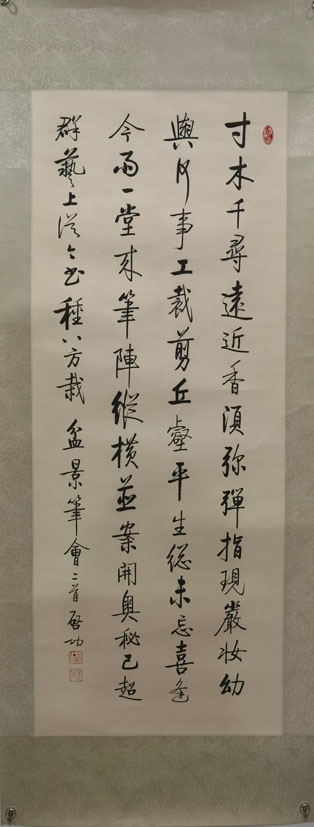 寸木千尋遠近香須弥彈指現嚴妝幼
輿何事工裁剪丘壑平生總未忘喜逢
今雨一堂來筆陣縱橫並案開奧秘已超
群藝上從今書種八方栽 盆景筆會二首 啟功